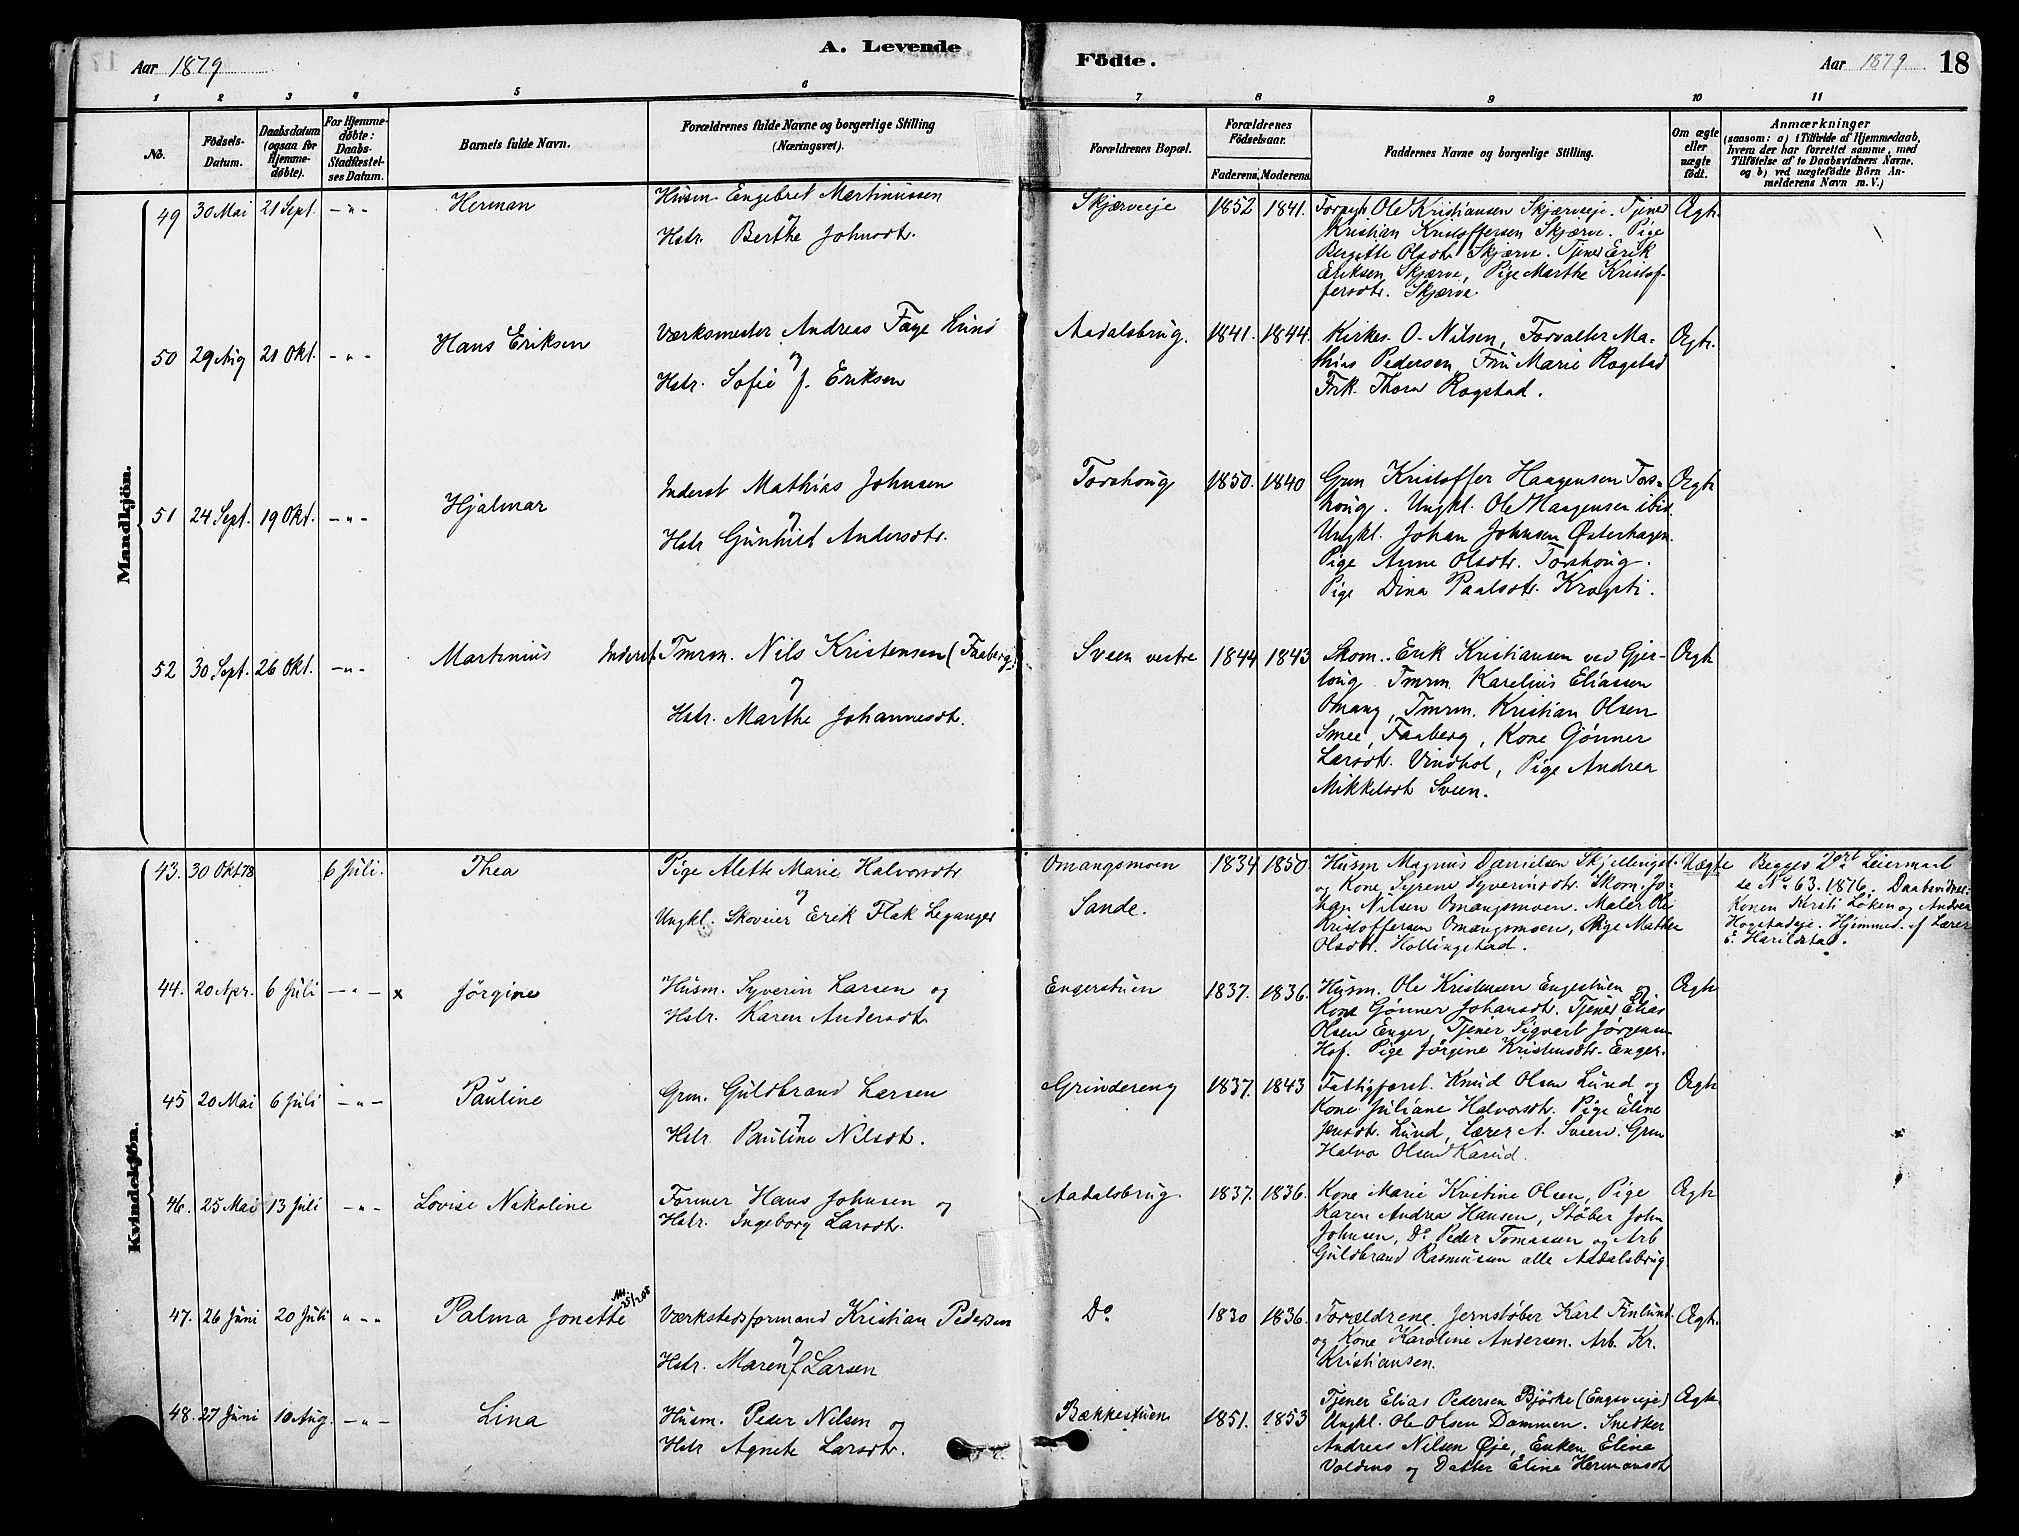 Aar 1879
A. Levende
Födte.
Aar 1879
18
1 2 3 4 5 6 7 8 9 10 11
No.
Födsels-
Datum.
Daabsdatum
(ogsaa for
Hjemme-
döbte).
For Hjemme-
döbte:
Daabs-
Stadfæstel-
ses Datum.
Barnets fulde Navn.
Forældrenes fulde Navne og borgerlige Stilling
(Næringsvei).
Forældrenes Bopæl.
Forældrenes
Födselsaar.
Faderens. Moderens.
Faddernes Navne og borgerlige Stilling.
Om ægte
eller
uægte
födt.
Anmærkninger
(saasom: a) i Tilfælde af Hjemmedaab,
hvem der har forrettet samme, med
Tilföielse af to Daabsvidners Navne,
og b) ved uægtefödte Börn An-
melderens Navn m. V.)
Mandkjön.
49 30 Mai 21 Sept. -"- Herman
Husm Engebret Martinussen
og
Hstr. Berthe Johnsdt.
Skjærveeje 1852 1841.
Ole Kristiansen Skjærveeje. Tjener
Kristian Kristoffersen Skjærve. Pige
Bergitte Olsdt. Skjærve. Tjener Erik
Eriksen Skjærve, Pige Marthe Kristof-
fersdtr. Skjærve
Ægte
50 29 Aug 21 Okt. -"- Hans Eriksen
Værksmester Andreas Faye Lund
og
Hstr. Sofie J. Eriksen
Aadalsbrug. 1841. 1844.
Kirkes. O. Nilsen, Forvalter Ma-
thias Pedersen, Fru Marie Rogstad
Frk. Thora Rogstad.
Ægte.
51 24 Sept. 19 Okt. -"- Hjalmar
Inderst Mathias Johnsen
og
Hstr Gunhild Andersdtr.
Torshoug 1850. 1840
Grm Kristoffer Haagensen Tors-
houg. Ungkl. Ole Haagensen ibid.
Ungkl. Johan Johnsen Østerhagen.
Pige Anne Olsdtr. Torshoug.
Pige Dina Paalsdtr. Krogsti.
Ægte
52 30 Sept. 26 Okt. -"- Martinius
Inderst. Tmrm. Nils Kristensen (Faaberg)
og
Hstr. Marthe Johannesdt.
Sveen vestre 1844 1843
Skom. Erik Kristiansen ved Gjer-
loug. Tmrm. Karelius Eliassen
Omang, Tmrm. Kristian Olsen
Smee, Faaberg, Kone Gønner
Larsdtr. Vindhol, Pige Andrea
Mikkelsdt Sveen.
Ægte
Kvindekjön.
43. 30 Okt 78 6 Juli. Thea
Pige Alette Marie Halvorsdtr
og
Ungkl. Skoveier Erik Flak Leganger
Omangsmoen
Sande.
1834 1850.
Husm Magnus Danielsen Skjellingst.
og Kone Syrene Syverinsdtr. Skom. Jo-
han Nilsen Omangsmoen. Maler Ole
Kristoffersen Omangsmoen, Pige Mathea
Olsdt. Hollingstad.
Uægte
Begges 2det Leiermaal
se No 63. 1876. Daabsvidner:
Konen Kersti Løken og Andrea
Hogstadeje. Hjemmed. af Lærer
E. Harildstad.
44. 20 Apr. 6 Juli -"- x Jørgine
Husm. Syverin Larsen og
Hstr. Karen Andersdt.
Engerstuen 1837. 1836.
Husm. Ole Kristensen Engestuen og
Kone Gønner Johansdt. Tjener Elias
Olsen Enger, Tjener Sigvart Jørgensen
Hof. Pige Jørgine Kristensdtr. Enger.
Ægte
45 20 Mai 6 Juli -"- Pauline
Grm. Guldbrand Larsen
og
Hstr Pauline Nilsdt.
Grindereng 1837. 1843
Fattigforst. Knud Olsen Lund og
Kone Juliane Halvorsdt. Pige Eline
Jensdt. Lund, Lærer A. Sveen. Grm
Halvo Olsen Karud.
Ægte
46. 25 Mai 13 Juli -"- Lovise Nikoline
Former Hans Johnsen og
Hstr. Ingeborg Larsdt.
Aadalsbrug 1837. 1836.
Kone Marie Kristine Olsen, Pige
Karen Andrea Hansen, Støber John
Johnsen, Do Peder Tomassen og Arb
Guldbrand Rasmussen alle Aadalsbrug
Ægte
47. 26 Juni 20 Juli "-" Palma Jonette
25/2 05
Værkstedsformand Kristian Pedersen
og
Hstr. Maren J Larsen
Do 1830 1836.
Forældrene. Jernstøber Karl Finlund
og Kone Karoline Andersen. Arb. Kr.
Kristiansen.
Ægte.
48. 27 Juni 10 Aug. -"- Lina
Husm. Peter Nilsen og
Hstr Agnete Larsdtr.
Bækkestuen 1851. 1853
Tjener Elias Pedersen Bjørke (Engsveeje)
Ungkl. Ole Olsen Dammen. Snedker
Andreas Nilsen Øje, Enken Eline
Voldmo og Datter Eline Hermansdt
Ægte.